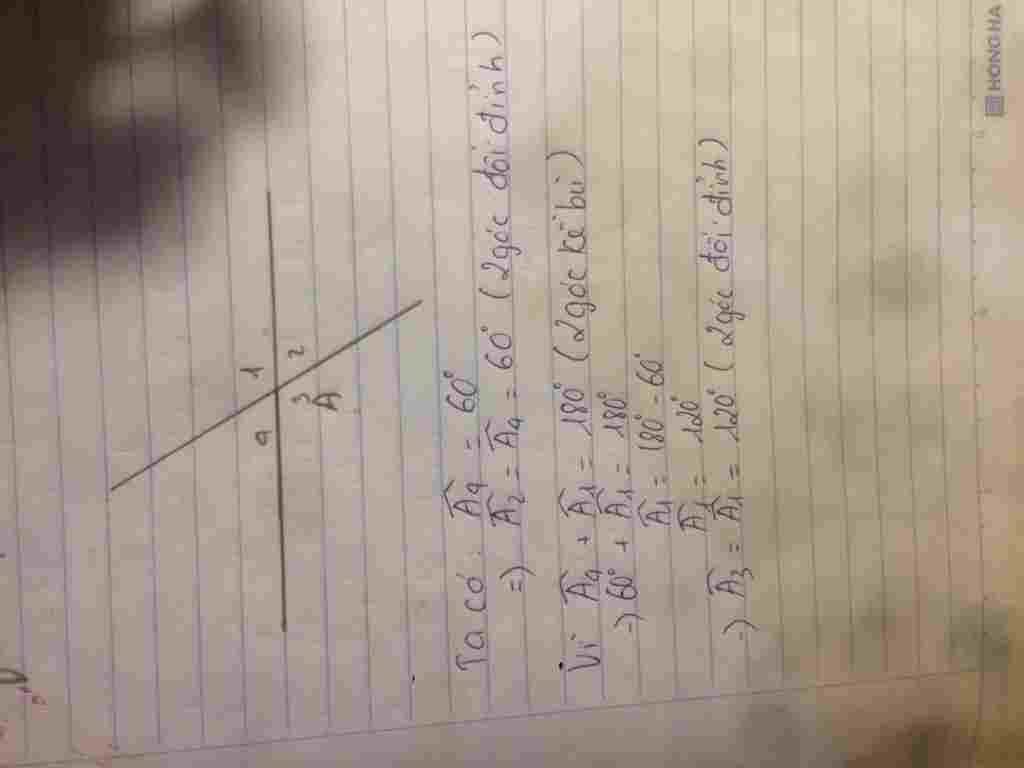 1
4
2
3
A
Ta có: Â4 = 60°
=) Â2 = Â4 = 60° (2 góc đối đỉnh)
Vì Â4 + Â1 = 180° (2 góc kề bù)
-) 60° + Â1 = 180°
Â1 = 180° - 60°
Â1 = 120°
-) Â3 = Â1 = 120° (2 góc đối đỉnh)
HONG HA